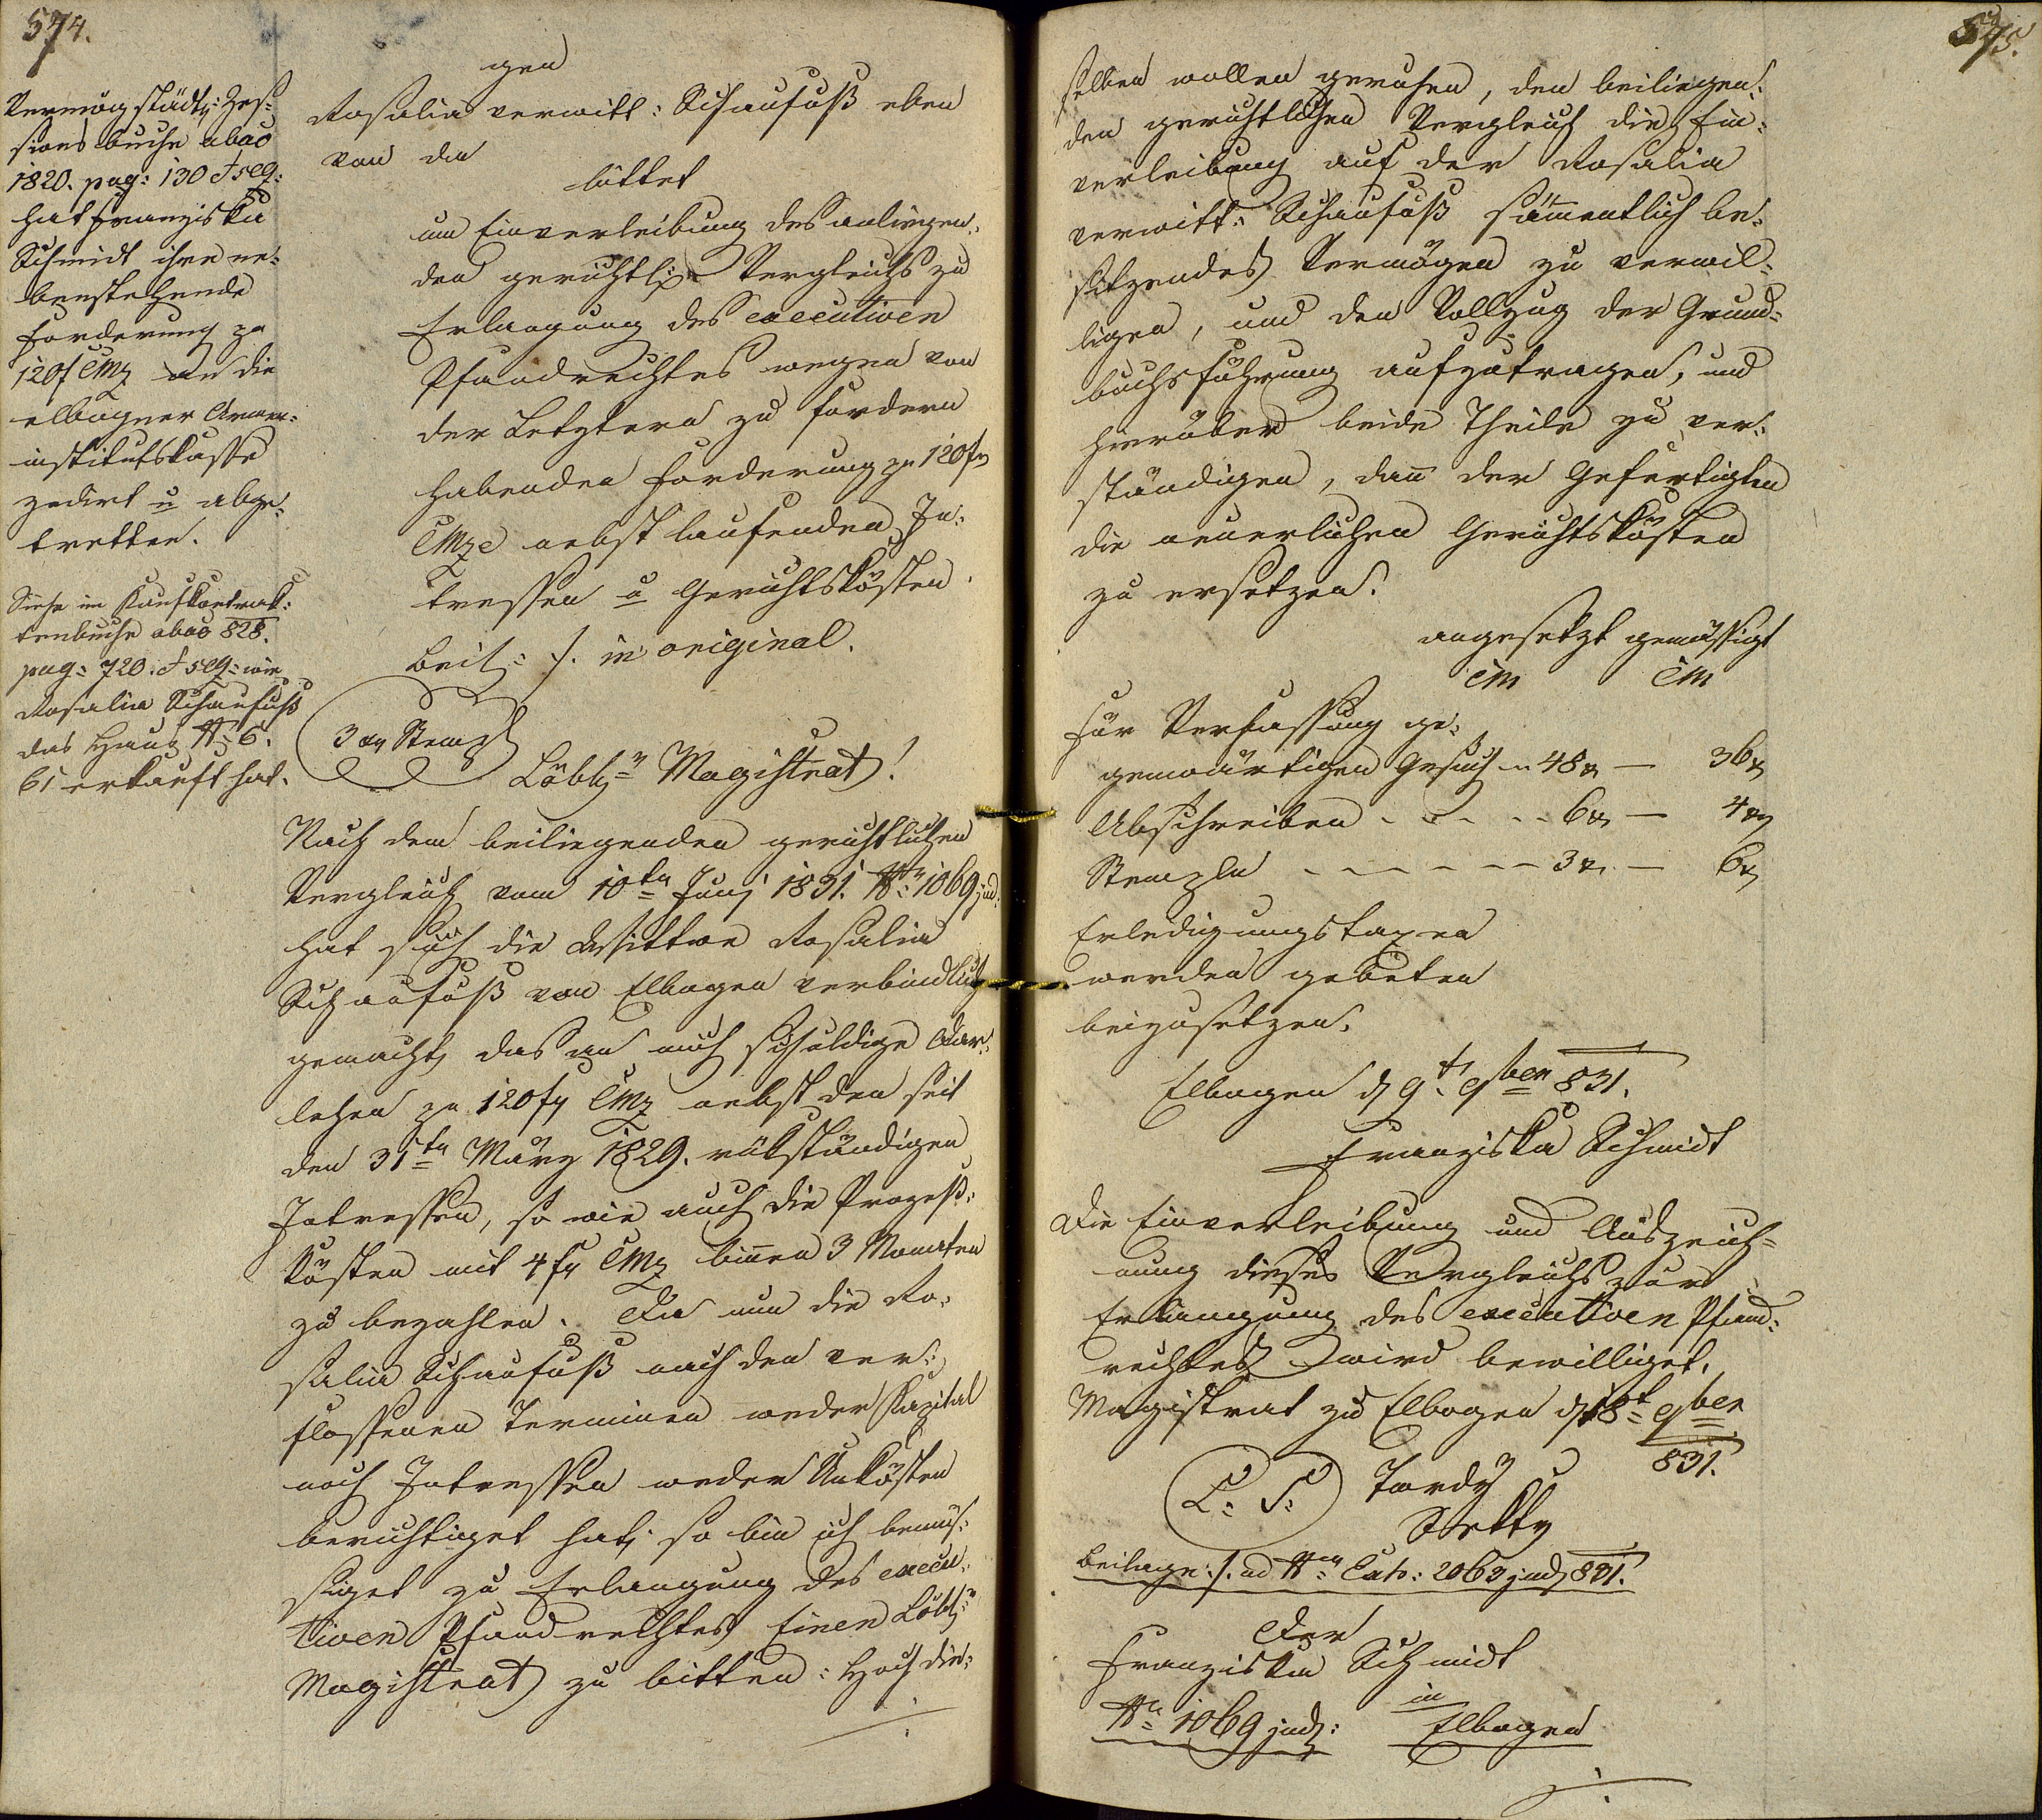 574.
Vermög städt: Zes-
sionsbuche abao
1820. pag: 130 & seq:
hat Franziska
Schmidt ihre ne-
benstehende
Forderung zu
120f CMz an die
elbogner Armen-
institutskasse
zedirt u abge-
tretten.
Siehe im Kaufkontrak-
tenbuche abao 828.
pag: 720. & seq: wie
Rosalia Schaufuß
das Haus N: 6.
61 erkauft hat.
gen
Rosalia verwitt: Schaufuß eben
von da
bittet
um Einverleibung des anliegen-
den gerichtl: Vergleichs zu
Erlangung des executiven
Pfandrechtes wegen von
der Letztern zu fordern
habenden Forderung zu 120f
CMze nebst laufenden In-
tressen u Gerichtskösten.
Beil: /. in original.
3 xr Stempl
Löbl: Magistrat!
Nach dem beiliegenden gerichtlichen
Vergleich vom 10ten Junj 1831. N: 1069 jud:
hat sich die Wittwe Rosalia
Schaufuß von Elbogen verbindlich
gemacht, das an mich schuldige Dar-
lehen zu 120f CMz nebst den seit
den 31ten März 1829. rükständigen
Intressen, so wie auch die Prozeß-
kösten mit 4f CMz binnen 3 Monaten
zu bezahlen. Da nun die Ro-
salia Schaufuß nach den ver-
flossenen Terminen weder Kapital
noch Intressen weder Unkösten
berichtiget hat, so bin ich bemüs-
siget zu Erlangung des execu-
tiven Pfandrechtes Einen Löbl:
Magistrat zu bitten: Hoch die-
575.
selben wollen geruhen, den beiliegen-
den gerichtlichen Vergleich die Ein-
verleibung auf der Rosalia
verwitt: Schaufuß sämmentlich be-
sitzendes Vermögen zu verwil-
ligen, und den Vollzug der Grund-
buchsführung aufzutragen, und
hierüber beide Theile zu ver-
ständigen, dann der Gefertigten
die neuerlichen Gerichtskösten
zu ersetzen.
angesetzt gemässigt
CM CM
Für Verfassung ge-
genwärtigen Gesuch 48 xr — 36 xr
Abschreiben - - - - - 6 xr — 4 xr
Stempln - - - - - - 3 xr — 6 xr
Erledigungstaxen
werden gebeten
beizusetzen.
Elbogen d 9t 9ber 831.
Franziska Schmidt
Die Einverleibung und Auszeich-
nung dieses Vergleichs zur
Erlangung des executiven Pfand-
rechtes wird bewilliget.
Magistrat zu Elbogen d 18t 9ber
831.
L: S: Tardy
Beilage: /. ad N: Exh: 2063 jud 831.
Der
Franziska Schmidt
in
N: 1069 jud: Elbogen